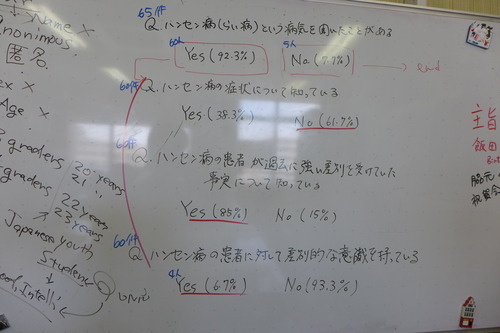 Name x
匿名
65件
Q. ハンセン病(らい病)という病気を聞いたことがある
60人
Yes (92.3%)
5人
No (7.7%)
end
60件
Q. ハンセン病の症状について知っている
Yes (38.3%)
No (61.7%)
60件
Q. ハンセン病の患者が過去に強い差別を受けていた
事実について知っている
Yes (85%)
No (15%)
60件
Q. ハンセン病の患者に対して差別的な意識を持っている
4人
Yes (6.7%)
No (93.3%)
Age x
20 years
21 〃
22 years
23 years
Japanese youth
Students
主旨
飯田